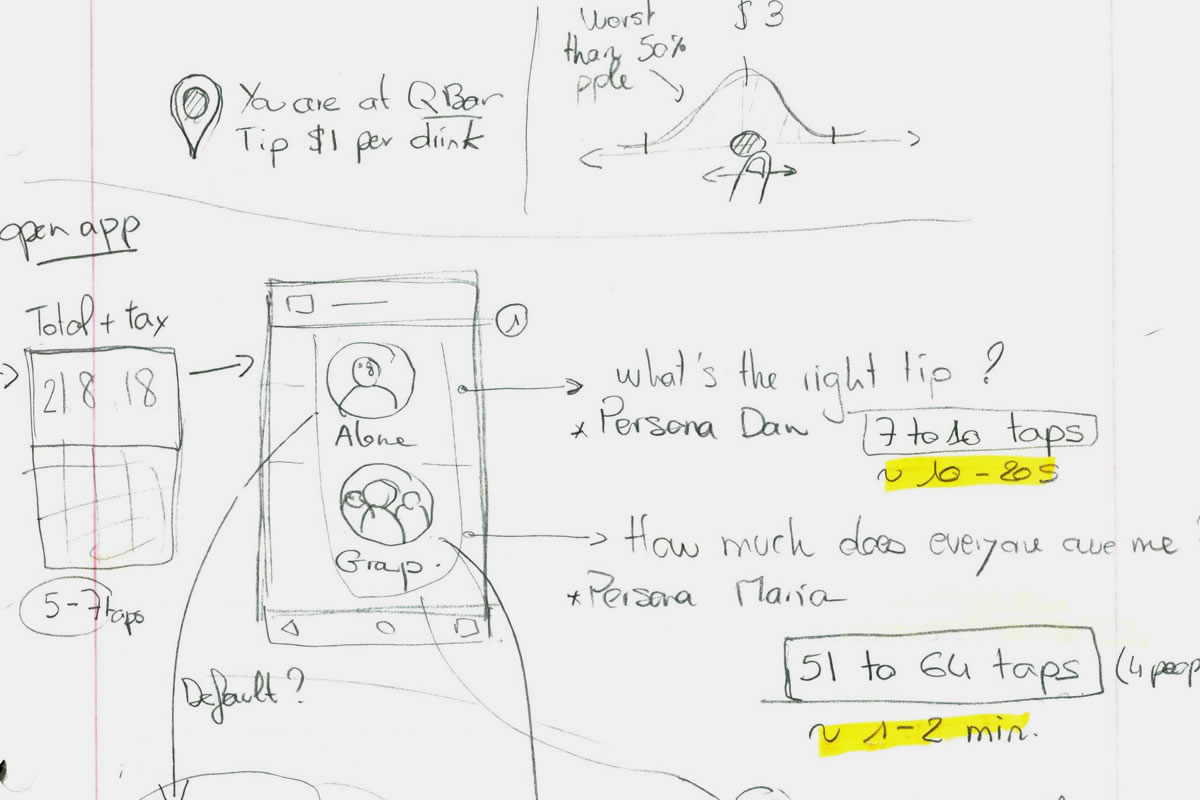 Worst
than 50%
pple
$3
You are at QBar
Tip $1 per drink
open app
Total + tax
218.18
5-7 taps
1
Alone
Group.
Default?
what's the right tip?
* Persona Dan
7 to 10 taps
~ 10-20s
How much does everyone owe me ?
* Persona Maria
51 to 64 taps
(4 peop
~ 1-2 min.